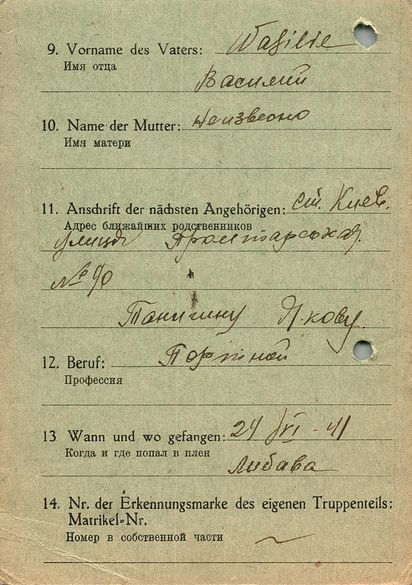 9. Vorname des Vaters: Wasilie
Имя отца
Василий
10. Name der Mutter: Неизвесно
Имя матери
11. Anschrift der nächsten Angehörigen: ст. Киев.
Адрес ближайших родственников
улица
№ 90
Танигину Якову.
12. Beruf: Портной
Профессия
13 Wann und wo gefangen: 24/VI-41
Когда и где попал в плен
Либава
14. Nr. der Erkennungsmarke des eigenen Truppenteils:
Matrikel-Nr.
Номер в собственной части